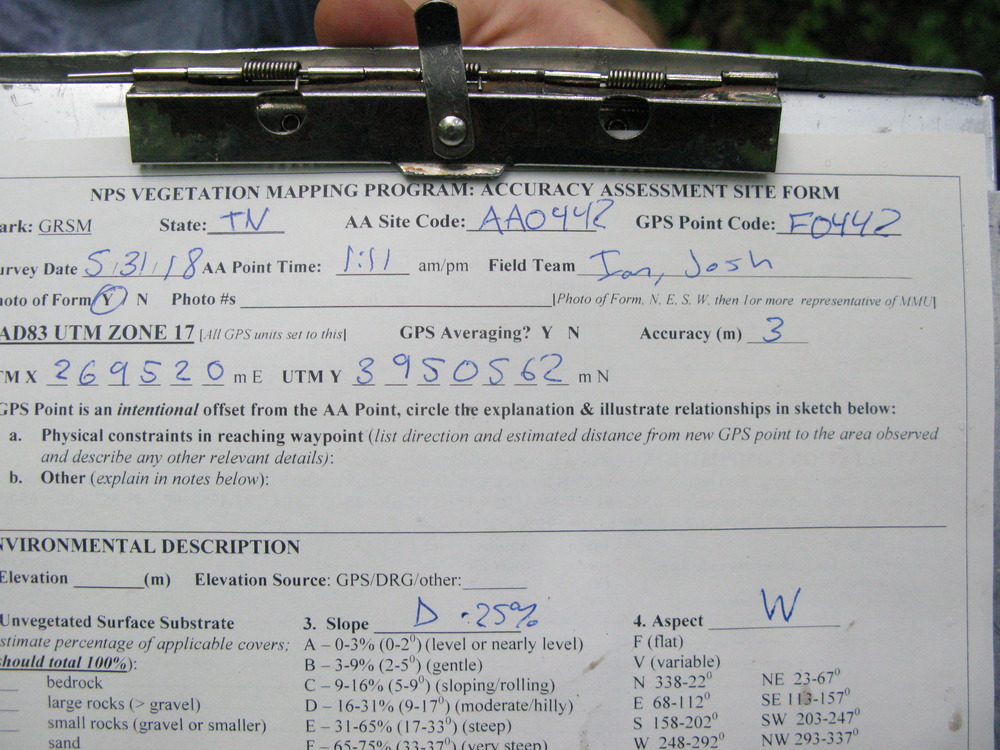 NPS VEGETATION MAPPING PROGRAM: ACCURACY ASSESSMENT SITE FORM
ark: GRSM State: TN AA Site Code: AA0442 GPS Point Code: F0442
urvey Date 5/31/18 AA Point Time: 1:11 am/pm Field Team Ian, Josh
hoto of Form Y N Photo #s [Photo of Form, N, E, S, W, then 1or more representative of MMU]
AD83 UTM ZONE 17 [All GPS units set to this] GPS Averaging? Y N Accuracy (m) 3
TM X 269520 m E UTM Y 3950562 m N
GPS Point is an intentional offset from the AA Point, circle the explanation & illustrate relationships in sketch below:
a. Physical constraints in reaching waypoint (list direction and estimated distance from new GPS point to the area observed
and describe any other relevant details):
b. Other (explain in notes below):
NVIRONMENTAL DESCRIPTION
Elevation (m) Elevation Source: GPS/DRG/other:
Unvegetated Surface Substrate 3. Slope D .25% 4. Aspect W
stimate percentage of applicable covers; A – 0-3% (0-2⁰) (level or nearly level) F (flat)
hould total 100%): B – 3-9% (2-5⁰) (gentle) V (variable)
bedrock C – 9-16% (5-9⁰) (sloping/rolling) N 338-22⁰ NE 23-67⁰
large rocks (> gravel) D – 16-31% (9-17⁰) (moderate/hilly) E 68-112⁰ SE 113-157⁰
small rocks (gravel or smaller) E – 31-65% (17-33⁰) (steep) S 158-202⁰ SW 203-247⁰
sand F – 65-75% (33-37⁰) (very steep) W 248-292⁰ NW 293-337⁰